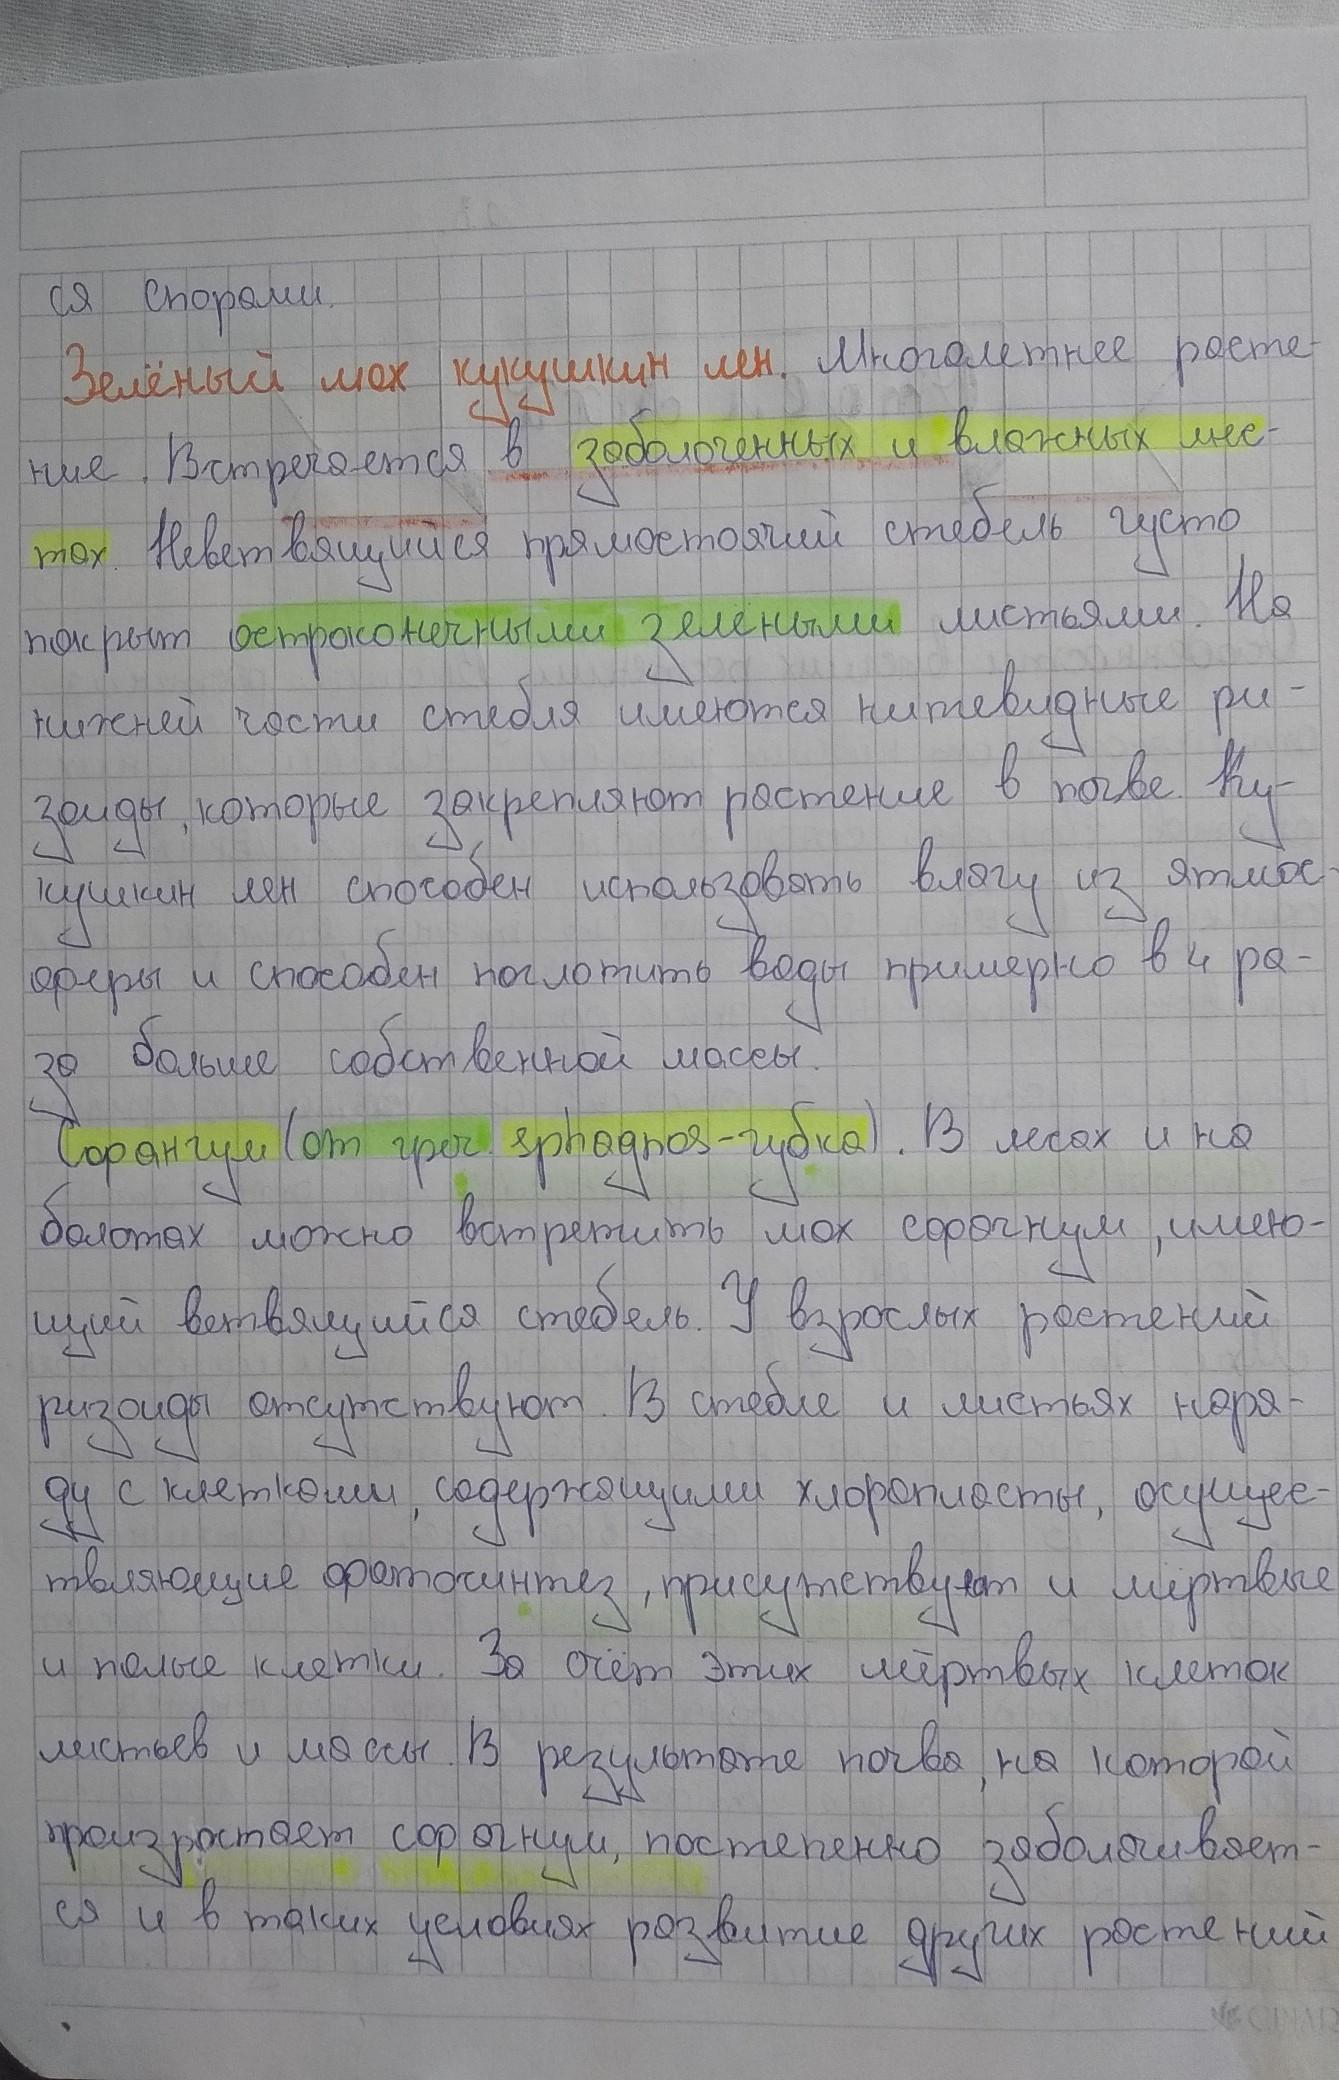 ся спорами.
Зелёный мох кукушкин лен. Многолетнее расте-
ние. Встречается в заболоченных и влажных мес-
тах. Неветвящийся прямостоячий стебель густо
покрыт остроконечными зелёными листьями. На
нижней части стебля имеются нитевидные ри-
зоиды, которые закрепляют растение в почве. Ку-
кушкин лен способен использовать влагу из атмос-
феры и способен поглотить воды примерно в 4 ра-
за больше собственной массы.
Сфангум (от греч. sphagnos-губка). В лесах и на
болотах можно встретить мох сфагнум, имею-
щий ветвящийся стебель. У взрослых растений
ризоиды отсутствуют. В стебле и листьях наря-
ду с клетками, содержащими хлоропласты, осущес-
твляющие фотосинтез, присутствуют и мёртвые
и полые клетки. За счёт этих мёртвых клеток
листьев и массы. В результате почва, на которой
произрастает сфагнум, постепенно заболачивает-
ся и в таких условиях развитие других растений